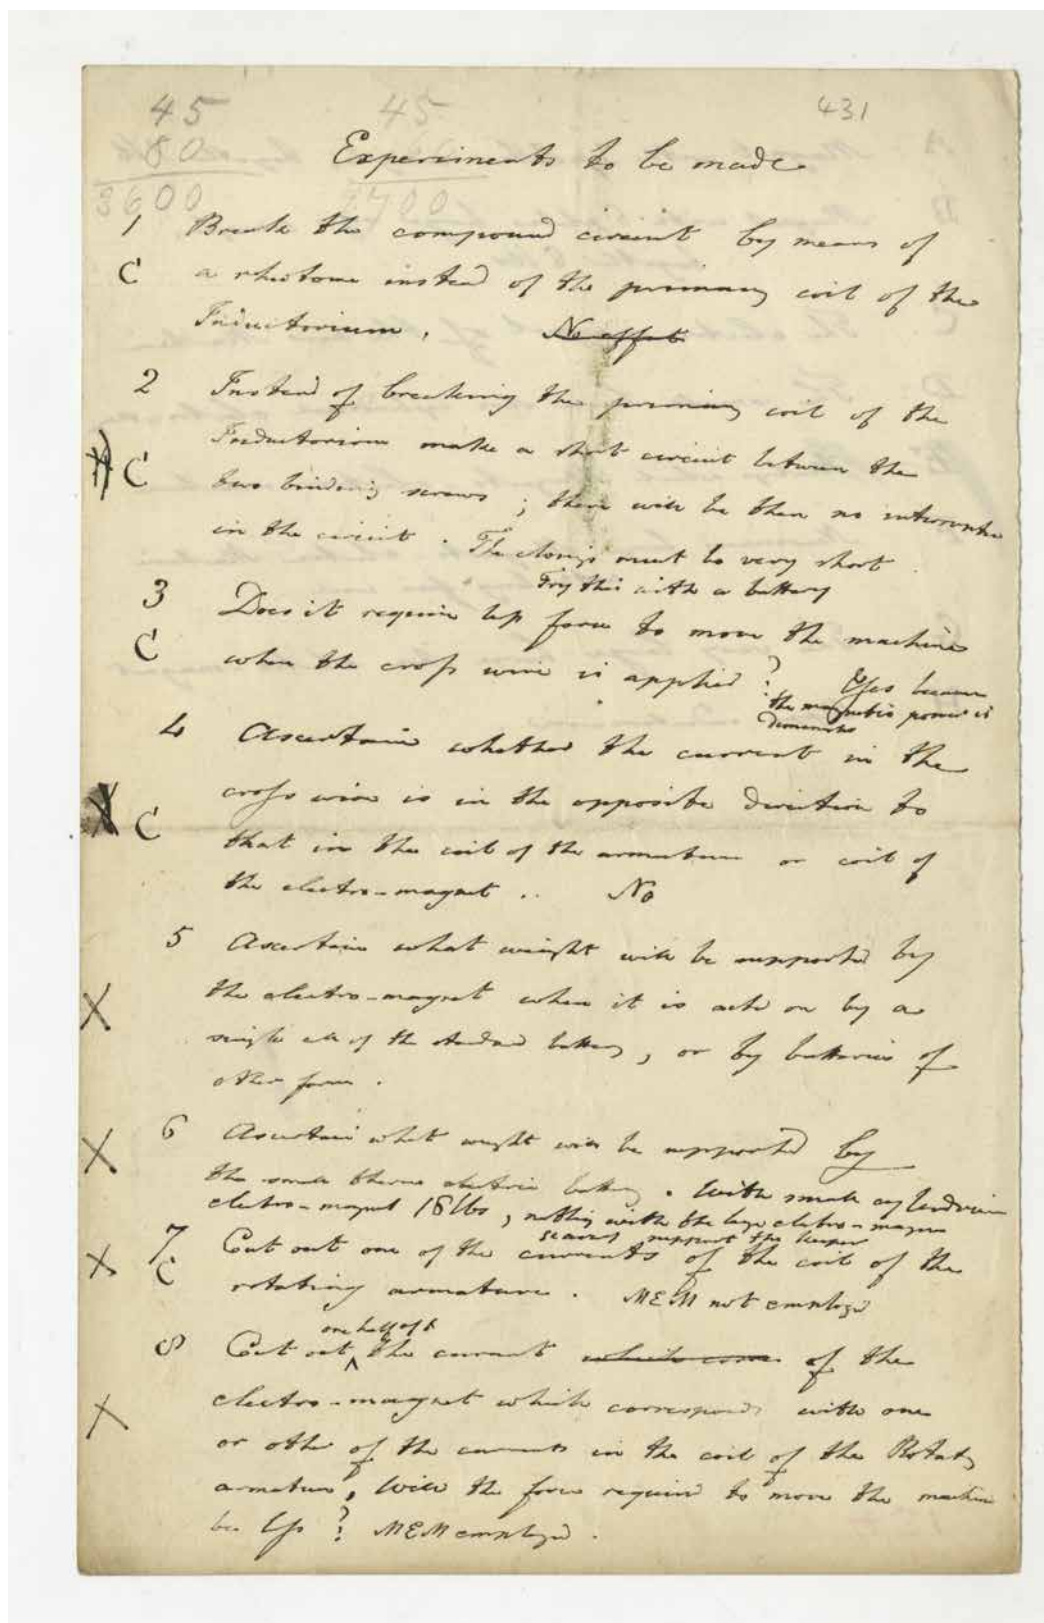 45 45 431
80
3600 2700
Experiments to be made
1 Break the compound circuit by means of
C a rheotome instead of the primary coil of the
Inductorium. No effect
2 Instead of breaking the primary coil of the
C Inductorium make a short circuit between the
two binding screws ; there will be then no interruption
in the circuit. The closings must be very short
Try this with a battery
3 Does it require less force to move the machine
C when the cross wire is applied? Yes because
the magnetic power is
4 Ascertain whether the current in the
cross wire is in the opposite direction to
X C that in the coil of the armature or coil of
the electro-magnet .. No
5 Ascertain what weight will be supported by
X the electro-magnet when it is acted on by a
single cell of the standard battery, or by batteries of
other form.
6 Ascertain what weight will be supported by
X the small thermo electric battery. With small cylindrical
electro-magnet 18 lbs, nothing with the large electro-magnet
scarcely support the keeper
7 Cut out one of the currents of the coil of the
X C rotating armature. MEM not employed
one half of
8 Cut out ^ the current which comes of the
X electro-magnet which corresponds with one
or other of the currents in the coil of the Rotatg
armature, Will the force required to move the machine
be less? MEM employed.